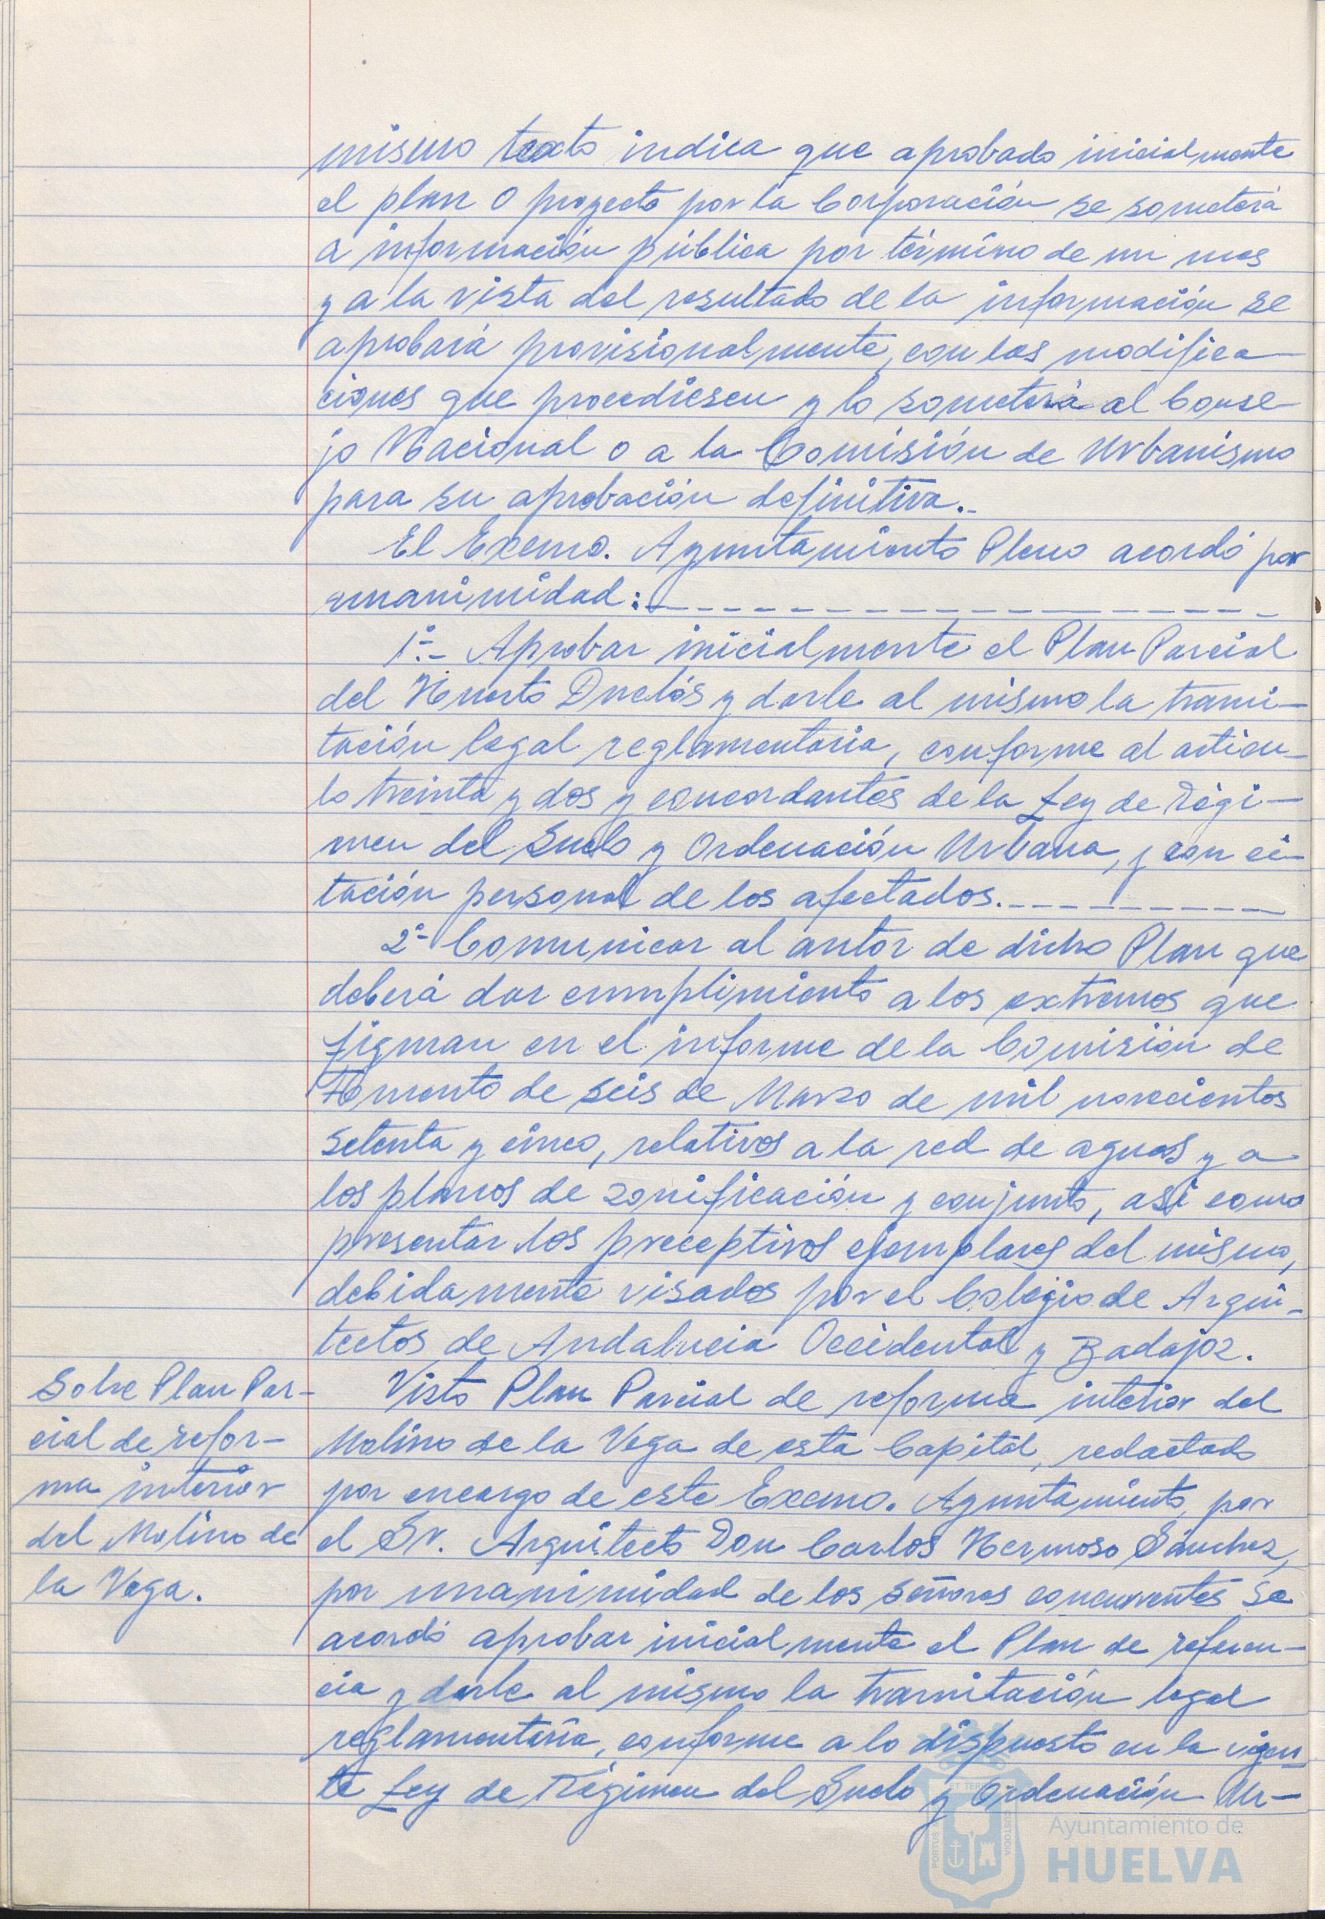 mismo texto indica que aprobado inicialmente
el plan o proyecto por la Corporación se someterá
a información pública por término de un mes
y a la vista del resultado de la información se
aprobará provisionalmente, con las modifica-
ciones que procediesen y lo someterá al Conse
jo Nacional o a la Comisión de Urbanismo
para su aprobación definitiva.-
El Excmo. Ayuntamiento Pleno acordó por
unanimidad:
1º.- Aprobar inicialmente el Plan Parcial
del Huerto Duclós y darle al mismo la trami-
tación legal reglamentaria, conforme al artícu-
lo treinta y dos y concordantes de la Ley de Régi-
men del Suelo y Ordenación Urbana, y con ci-
tación personal de los afectados.
2º- Comunicar al autor de dicho Plan que
deberá dar cumplimiento a los extremos que
figuran en el informe de la Comisión de
Fomento de seis de Marzo de mil novecientos
setenta y cinco, relativos a la red de aguas y a
los planos de zonificación y conjunto, así como
presentar los preceptivos ejemplares del mismo,
debidamente visados por el Colegio de Arqui-
tectos de Andalucia Occidental y Badajoz.
Sobre Plan Par-
cial de refor-
ma interior
del Molino de
la Vega.
Visto Plan Parcial de reforma interior del
Molino de la Vega de esta Capital, redactado
por encargo de este Excmo. Ayuntamiento, por
el Sr. Arquitecto Don Carlos Hermoso Sánchez,
por unanimidad de los señores concurrentes se
acordó aprobar inicialmente el Plan de referen-
cia y darle al mismo la tramitación legal
reglamentaria, conforme a lo dispuesto en la vigen-
te Ley de Régimen del Suelo y Ordenación Ur-
Ayuntamiento de
HUELVA